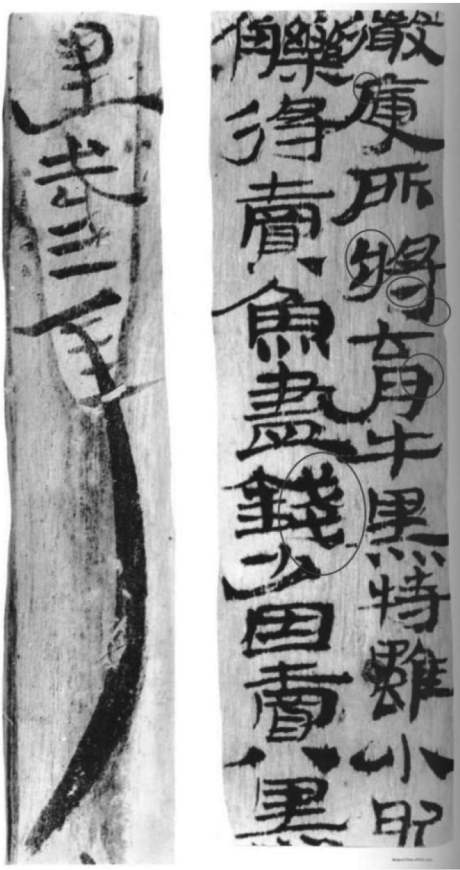 微庾所將育牛黑特雖小肥
觻得賣魚盡錢少因賣黑
建武三年